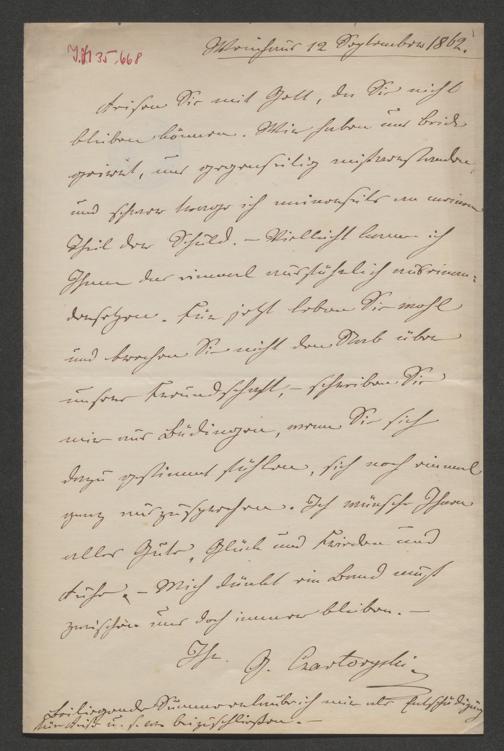 I.N. 35.668
Weinhaus 12 September 1862.
Reisen Sie mit Gott, da Sie nicht
bleiben können. Wir haben uns beide
geirrt, uns gegenseitig mißverstanden,
und schwer trage ich meinerseits an meinem
Theil der Schuld. – Vielleicht kann ich
Ihnen das einmal ausführlich auseinan-
dersetzen. Für jetzt leben Sie wohl
und brechen Sie nicht den Stab über
unsere Freundschaft, – schreiben Sie
mir aus Büdingen, wenn Sie sich
dazu gestimmt fühlen, sich noch einmal
ganz auszusprechen. Ich wünsche Ihnen
alles Gute, Glück und Frieden und
Ruhe. – Mich dünkt ein Band muß
zwischen uns doch immer bleiben. –
Ihr. G. Czartoryski
Beiliegende Summe erlaube ich mir als Entschädigung
für Reise u. s. w. beizuschließen. –